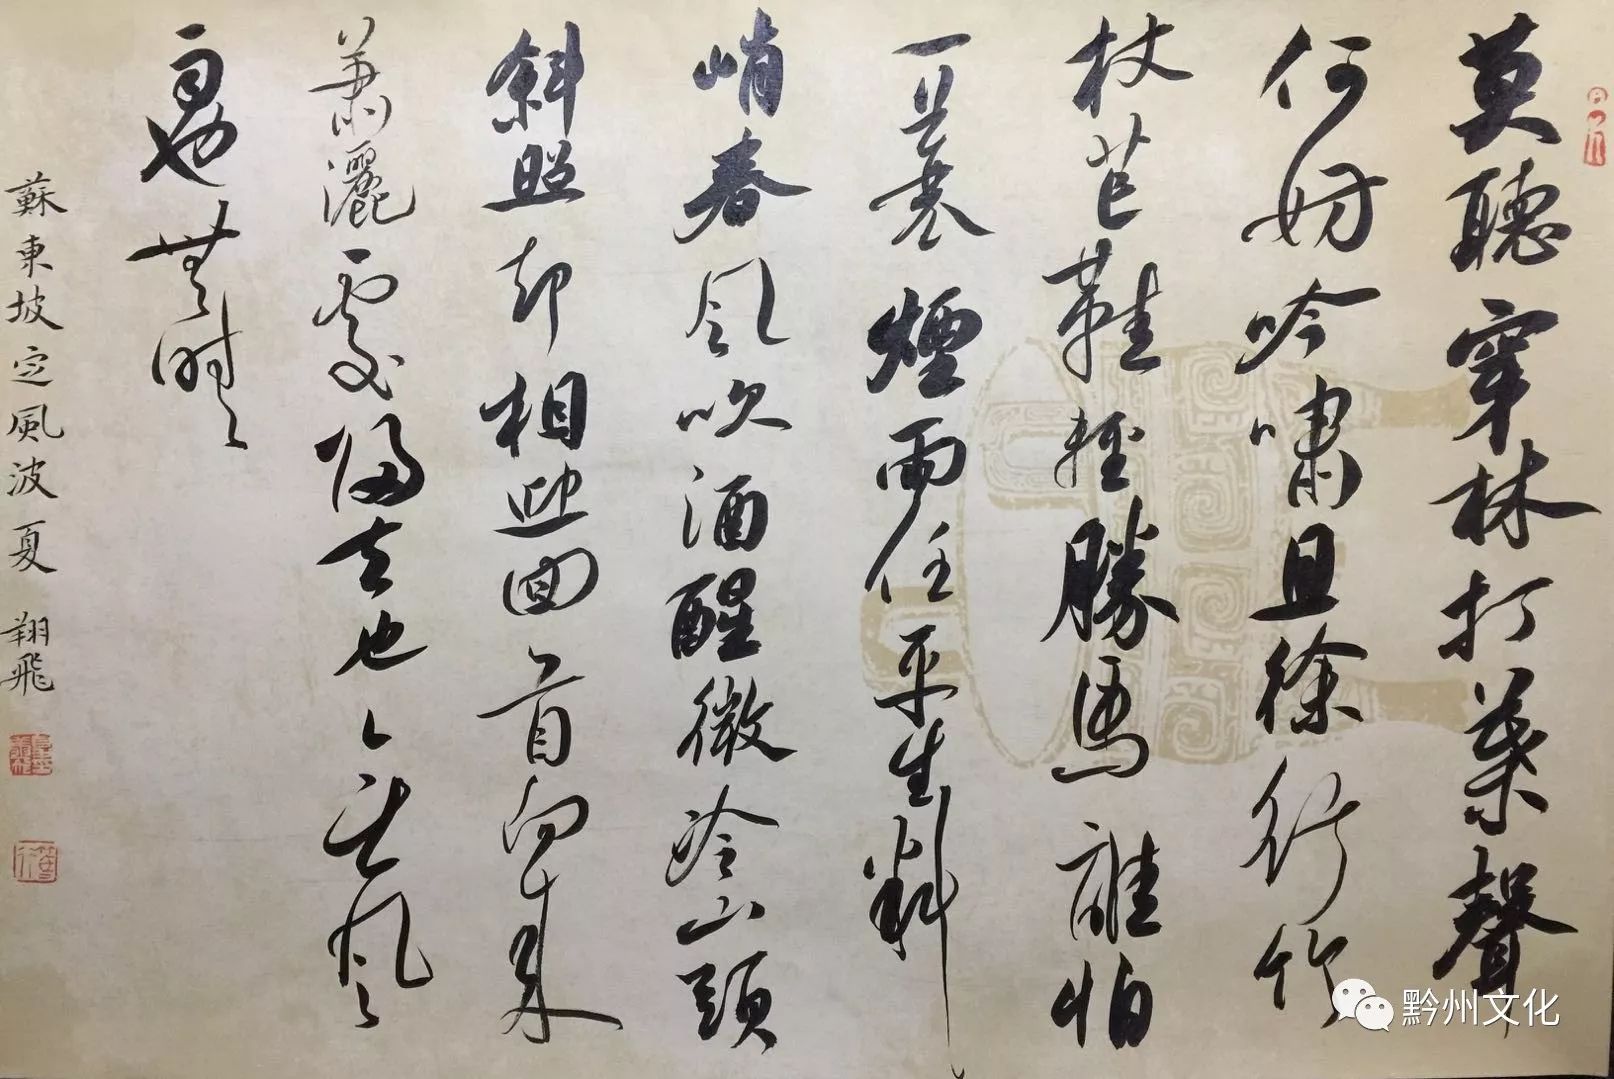 莫聽穿林打葉聲
何妨吟嘯且徐行竹
杖芒鞋輕勝馬誰怕
一蓑煙雨任平生料
峭春风吹酒醒微冷山頭
斜照却相迎回首向來
蕭灑處歸去也〻无风
雨也無晴
蘇東坡定風波夏 翔飛
黔州文化